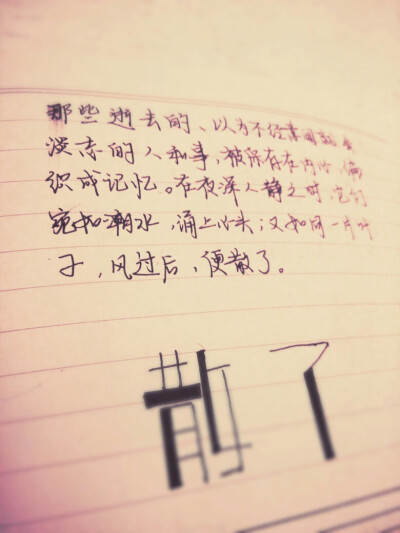 那些逝去的、以为不经常
忘的人和事，被保存在内心，编
织成记忆。在夜深人静之时，它们
宛如潮水，涌上心头；又如同一片叶
子，风过后，便散了。
散了